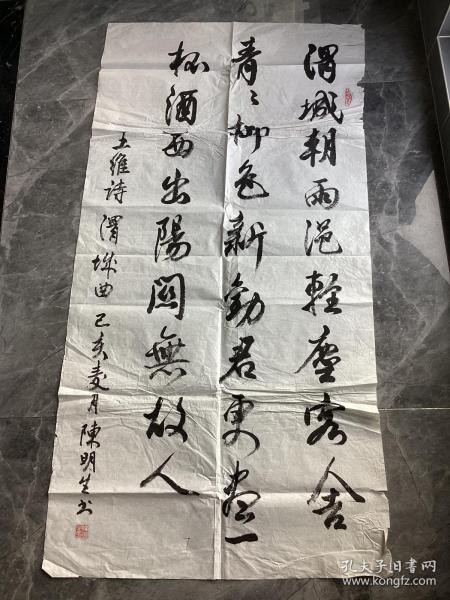 渭城朝雨浥輕塵客舍
青〻柳色新勸君更盡一
杯酒西出陽關無故人
王維詩 渭城曲 己亥麦月陳明生书
孔夫子旧书网
www.kongfz.com